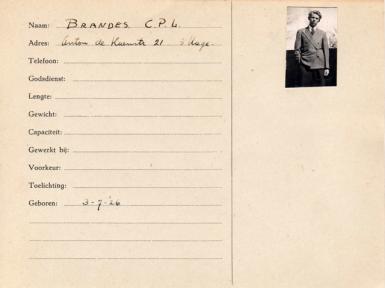 Naam: BRANDES C.P.L.
Adres: Anton de Haenstr 21 's Hage.
Telefoon:
Godsdienst:
Lengte:
Gewicht:
Capaciteit:
Gewerkt bij:
Voorkeur:
Toelichting:
Geboren: 3-7-'26